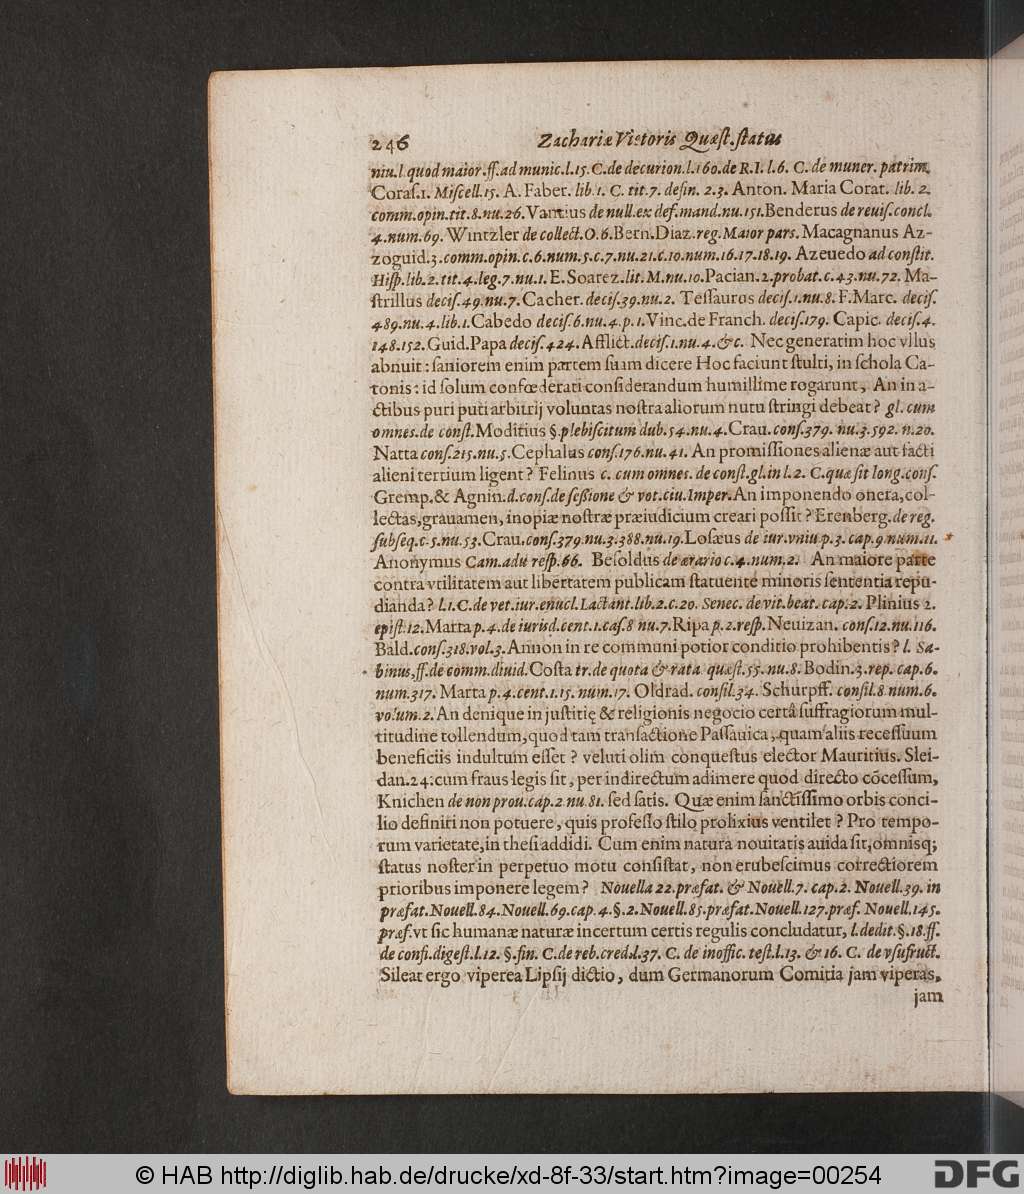 246 Zachariæ Victoris Quæſt. ſtatus
niu. l. quod maior. ff. ad munic. l. 15. C. de decurion. l. 160. de R. I. l. 6. C. de muner. patrim.
Coraſ. 1. Miſcell. 15. A. Faber. lib. 1. C. tit. 7. defin. 2. 3. Anton. Maria Corat. lib. 2.
comm. opin. tit. 8. nu. 26. Vantius de null. ex def. mand. nu. 151. Benderus de reuiſ. concl.
4. num. 69. Wintzler de collect. O. 6. Bern. Diaz. reg. Maior pars. Macagnanus Az-
zoguid. 3. comm. opin. c. 6. num. 5. c. 7. nu. 21. c. 10. num. 16. 17. 18. 19. Azeuedo ad conſtit.
Hiſp. lib. 2. tit. 4. leg. 7. nu. 1. E. Soarez. lit. M. nu. 10. Pacian. 2. probat. c. 43. nu. 72. Ma-
ſtrillus deciſ. 49. nu. 7. Cacher. deciſ. 39. nu. 2. Teſſaurus deciſ. 1. nu. 8. F. Marc. deciſ.
489. nu. 4. lib. 1. Cabedo deciſ. 6. nu. 4. p. 1. Vinc. de Franch. deciſ. 179. Capic. deciſ. 4.
148. 152. Guid. Papa deciſ. 424. Afflict. deciſ. 1. nu. 4. &c. Nec generatim hoc vllus
abnuit: ſaniorem enim partem ſuam dicere Hoc faciunt ſtulti, in ſchola Ca-
tonis: id ſolum confœderati conſiderandum humillime rogarunt, An in a-
ctibus puri puti arbitrij voluntas noſtra aliorum nutu ſtringi debeat? gl. cum
omnes. de conſt. Moditius §. plebiſcitum dub. 54. nu. 4. Crau. conſ. 379. nu. 3. 592. n. 20.
Natta conſ. 215. nu. 5. Cephalus conſ. 176. nu. 41. An promiſſiones alienæ aut facti
alieni tertium ligent? Felinus c. cum omnes. de conſt. gl. in l. 2. C. quæ ſit long. conſ.
Gremp. & Agnin. d. conſ. de ſeßione & vot. ciu. Imper. An imponendo onera, col-
lectas, grauamen, inopiæ noſtræ præiudicium creari poſſit? Erenberg. de reg.
ſubſeq. c. 5. nu. 53. Crau. conſ. 379. nu. 3. 388. nu. 19. Loſæus de iur. vniu. p. 3. cap. 9. num. 11.
Anonymus Cam. adu reſp. 66. Beſoldus de ærario c. 4. num. 2. An maiore parte
contra vtilitatem aut libertatem publicam ſtatuente minoris ſententia repu-
dianda? l. 1. C. de vet. iur. enucl. Lactant. lib. 2. c. 20. Senec. de vit. beat. cap. 2. Plinius 2.
epiſt. 12. Marta p. 4. de iurisd. cent. 1. caſ. 8 nu. 7. Ripa p. 2. reſp. Neuizan. conſ. 12. nu. 116.
Bald. conſ. 318. vol. 3. Annon in re communi potior conditio prohibentis? l. Sa-
binus, ff. de comm. diuid. Coſta tr. de quota & rata quæſt. 55. nu. 8. Bodin. 3. rep. cap. 6.
num. 317. Marta p. 4. cent. 1. 15. num. 17. Oldrad. conſil. 34. Schurpff. conſil. 8 num. 6.
volum. 2. An denique in juſtitię & religionis negocio certâ ſuffragiorum mul-
titudine tollendum, quod tam tranſactione Paſſauica, quam aliis receſſuum
beneficiis indultum eſſet? veluti olim conqueſtus elector Mauritius. Slei-
dan. 24. cum fraus legis ſit, per indirectum adimere quod directo cōceſſum,
Knichen de non prou. cap. 2 nu. 81. ſed ſatis. Quæ enim ſanctiſſimo orbis conci-
lio definiti non potuere, quis profeſſo ſtilo prolixius ventilet? Pro tempo-
rum varietate, in theſi addidi. Cum enim natura nouitatis auida ſit, omnisq;
ſtatus noſter in perpetuo motu conſiſtat, non erubeſcimus correctiorem
prioribus imponere legem? Nouella 22. præfat. & Nouell. 7. cap. 2. Nouell. 39. in
præfat. Nouell. 84. Nouell. 69. cap. 4. §. 2. Nouell. 85. præfat. Nouell. 127. præf. Nouell. 145.
præf. vt ſic humanæ naturæ incertum certis regulis concludatur, l. dedit. §. 18. ff.
de confi. digeſt. l. 12. §. fin. C. de reb. cred. l. 37. C. de inoffic. teſt. l. 13. & 16. C. de vſufruct.
Sileat ergo viperea Lipſij dictio, dum Germanorum Comitia jam viperas,
jam
© HAB http://diglib.hab.de/drucke/xd-8f-33/start.htm?image=00254
DFG